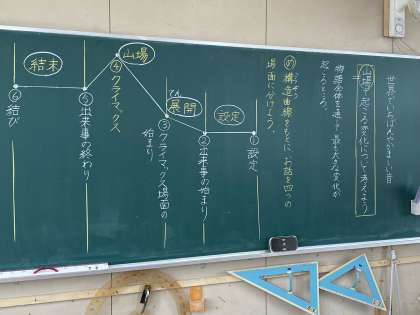 世界でいちばんやかましい音
山場で起こる変化について考えよう
物語全体を通して最も大きな変化が
起こるところ。
め 構造曲線をもとに、お話を四つの
場面に分けよう。
設定
①設定
②出来事の始まり
てん
展開
③クライマックス場面の
始まり
山場
④クライマックス
⑤出来事の終わり
結末
⑥結び